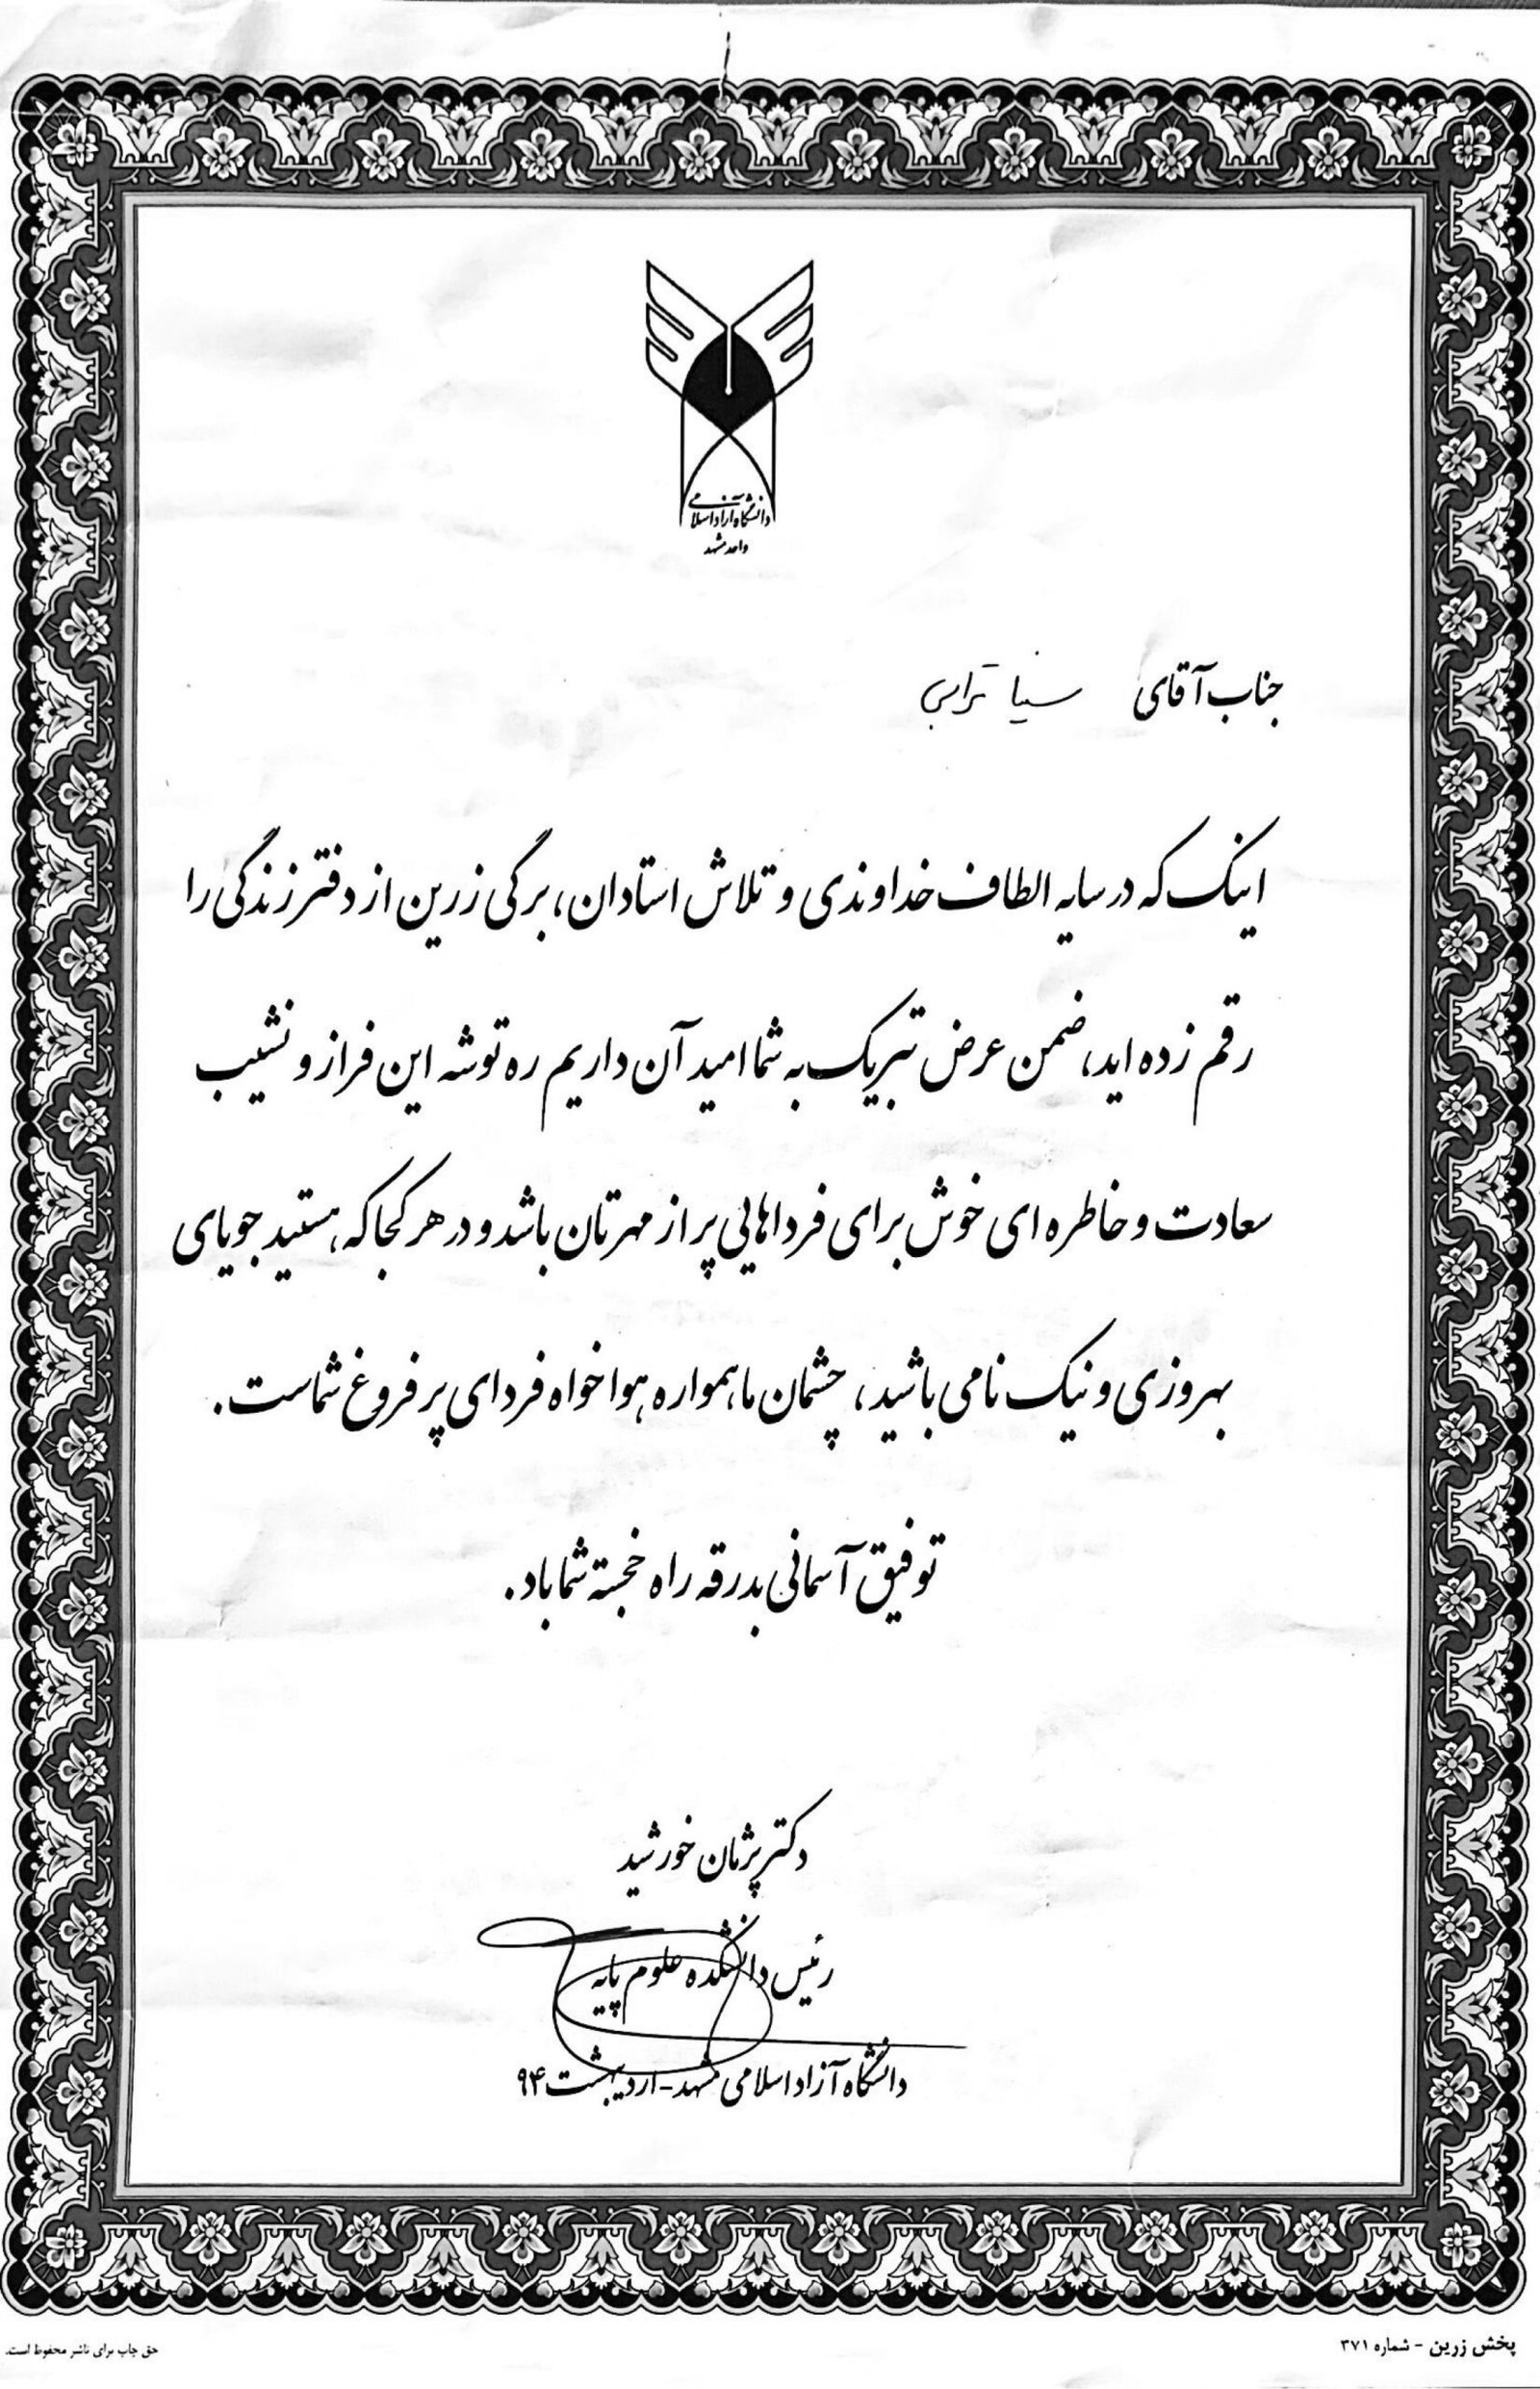 دانشگاه آزاد اسلامی
واحد مشهد
جناب آقای سینا ترابی
اینک که در سایه الطاف خداوندی و تلاش استادان، برگی زرین از دفتر زندگی را
رقم زده اید، ضمن عرض تبریک به شما امید آن داریم ره توشه این فراز و نشیب
سعادت و خاطره ای خوش برای فرداهایی پر از مهرتان باشد و در هر کجا که هستید جویای
بهروزی و نیک نامی باشید، چشمان ما همواره هوا خواه فردای پر فروغ شماست.
توفیق آسمانی بدرقه راه خجسته شما باد.
دکتر پژمان خورشید
رئیس دانشکده علوم پایه
دانشگاه آزاد اسلامی مشهد - اردیبهشت ۹۴
پخش زرین - شماره ۳۷۱
حق چاپ برای ناشر محفوظ است.